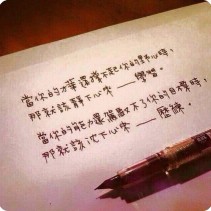 當你的才華還撐不起你的野心時，
那就該靜下心來——學習。
當你的能力還駕馭不了你的目標時，
那就該沈下心來——歷練。